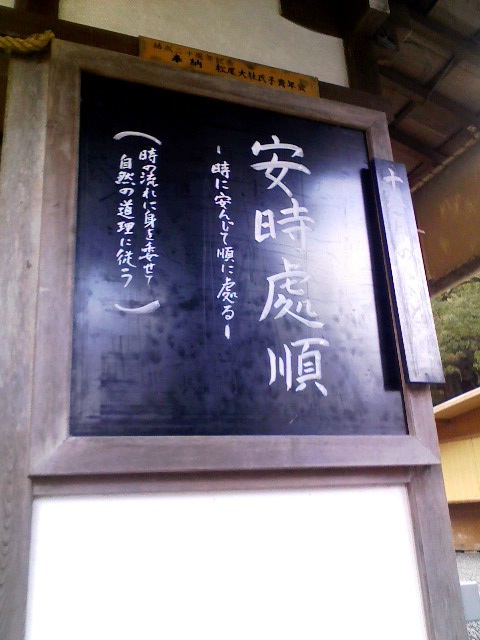 奉納 松尾大社氏子青年会
安時處順
-時に安んじて順に處る-
(時の流れに身を委せて
自然の道理に従う)
十